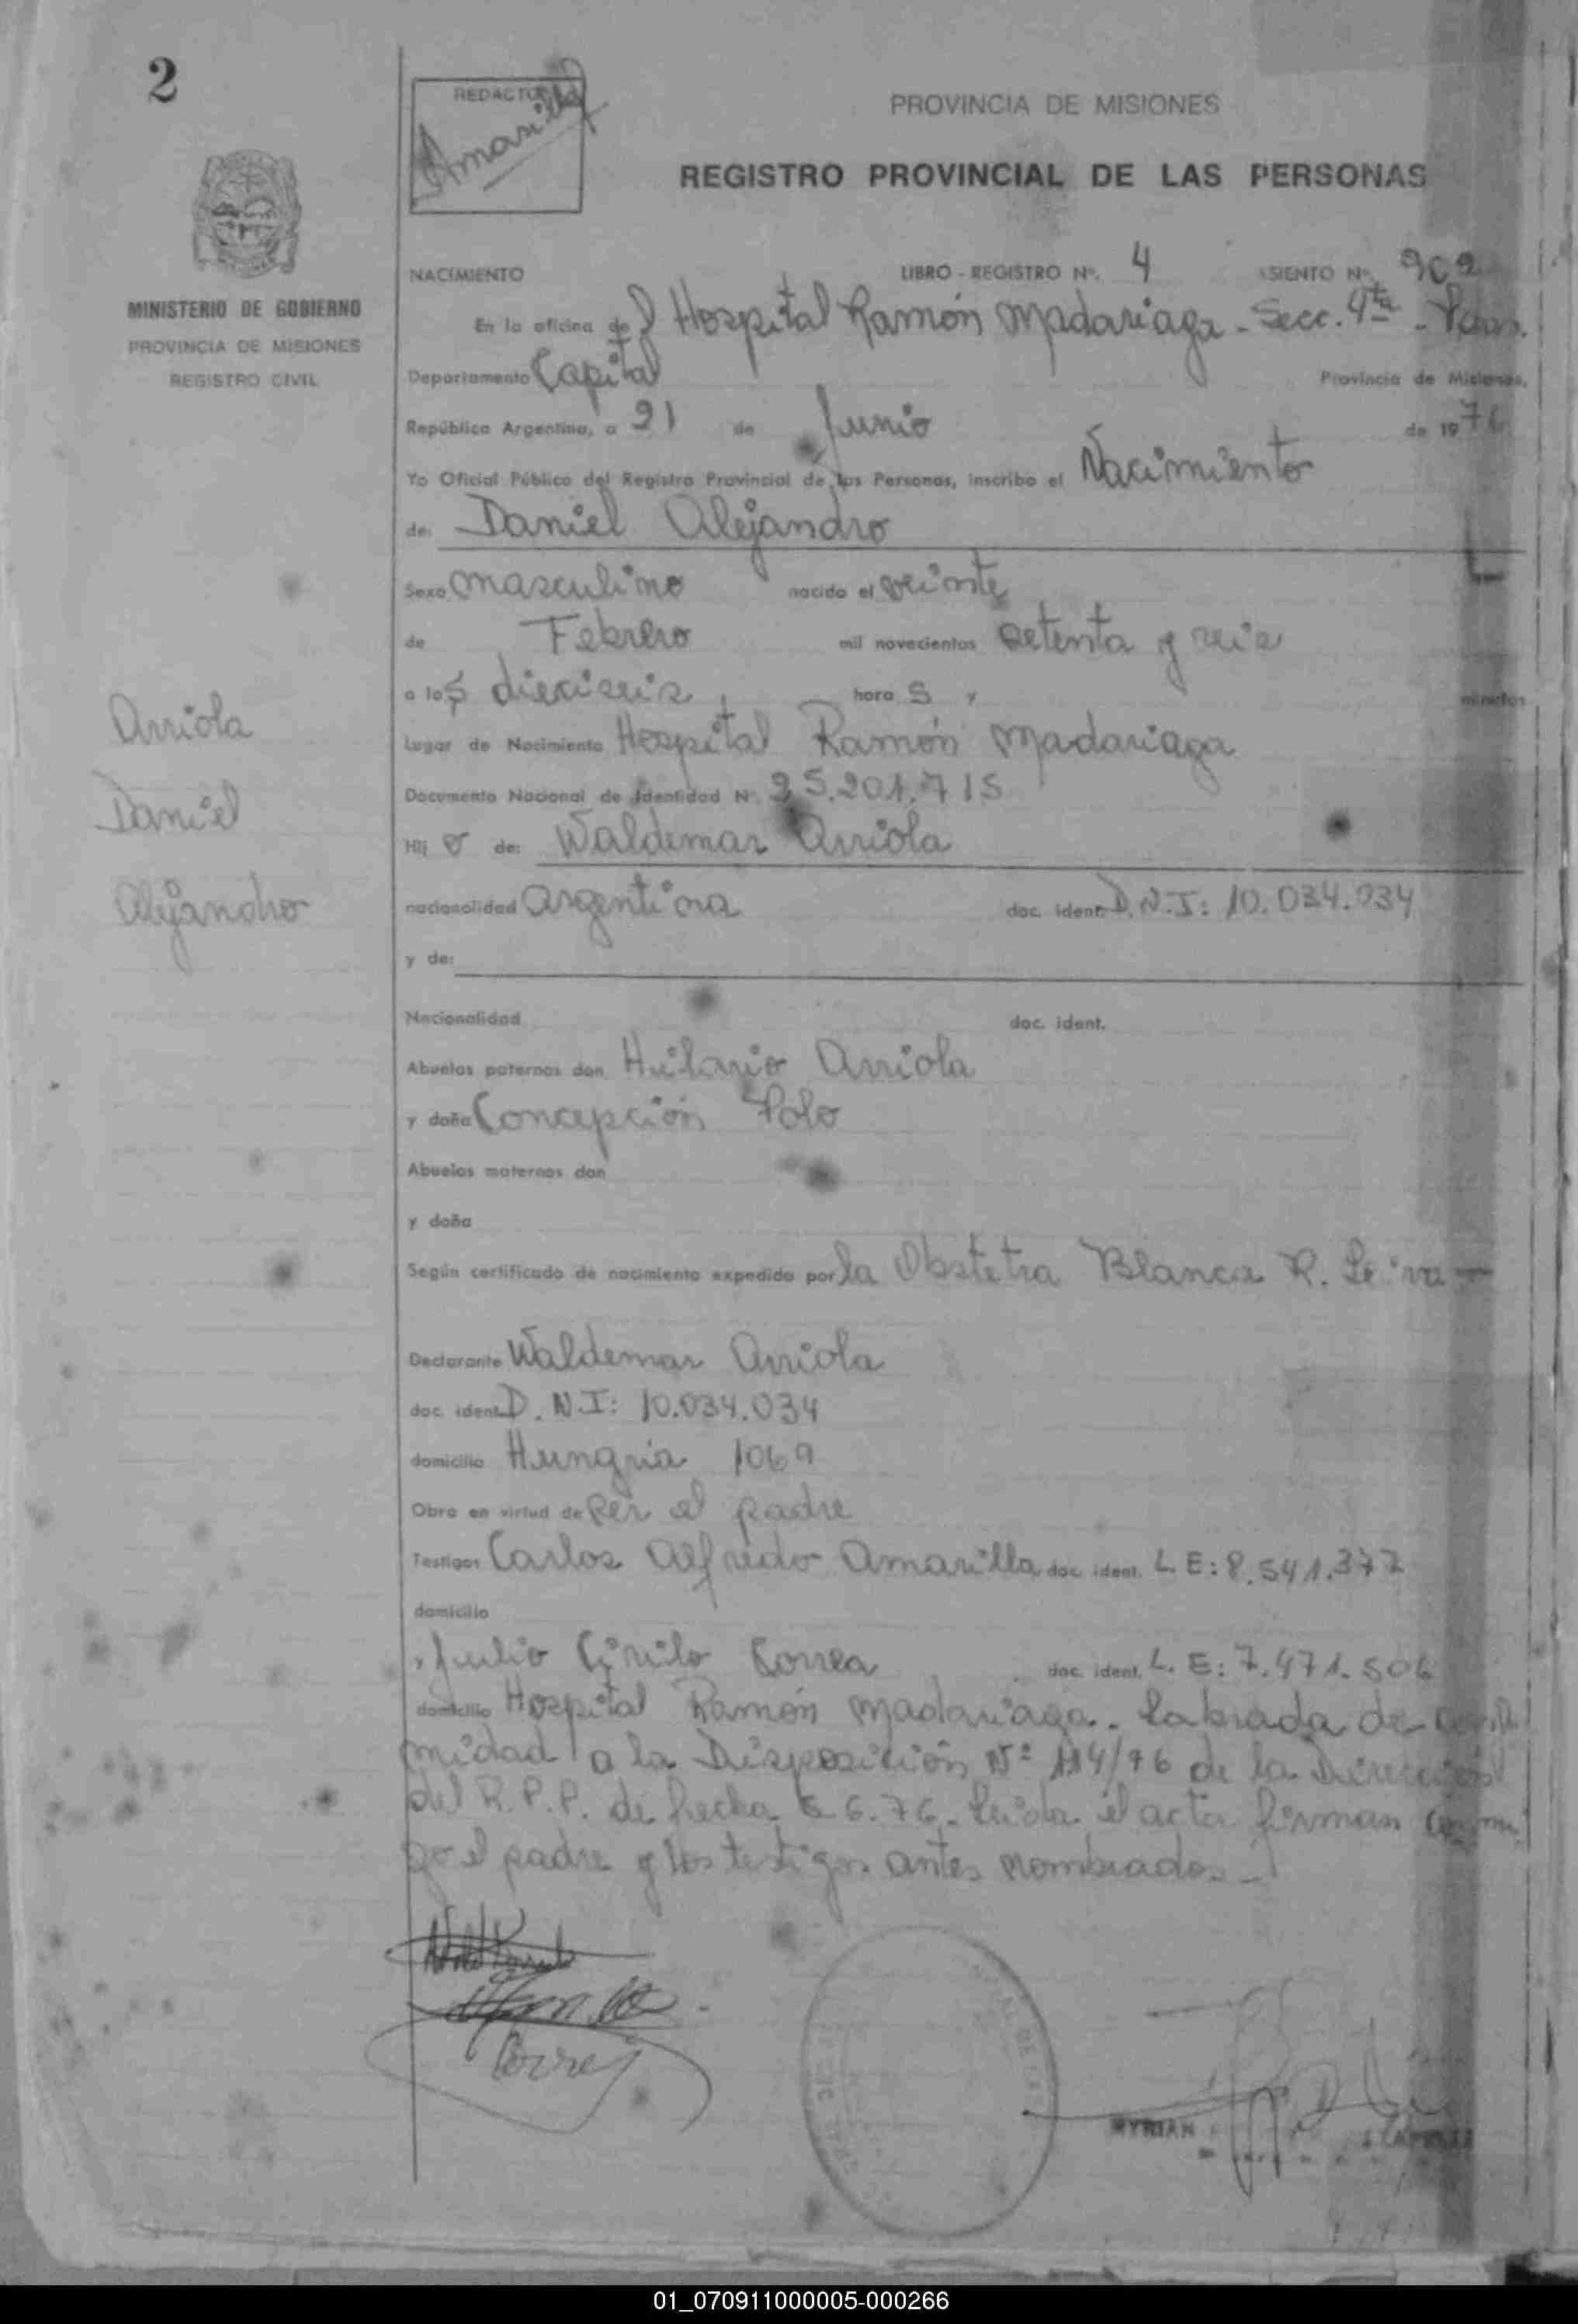 2
REDACTOR
Amarilla
PROVINCIA DE MISIONES
REGISTRO PROVINCIAL DE LAS PERSONAS
MINISTERIO DE GOBIERNO
PROVINCIA DE MISIONES
REGISTRO CIVIL
NACIMIENTO LIBRO - REGISTRO Nº. 4 ASIENTO Nº. 902
En la oficina del Hospital Ramón Madariaga - Secc. 4ta - Pdas.
Departamento Capital Provincia de Misiones,
República Argentina, a 21 de Junio de 1976
Yo Oficial Público del Registro Provincial de las Personas, inscribo el Nacimiento
de: Daniel Alejandro
Sexo masculino nacido el veinte
de Febrero mil novecientos setenta y seis
a las dieciseis horas y minutos
Lugar de Nacimiento Hospital Ramón Madariaga
Documento Nacional de Identidad Nº 25.201.715
Hijo de: Waldemar Arriola
nacionalidad argentina doc. ident. D.N.I: 10.034.034
y de:
Nacionalidad doc. ident.
Abuelos paternos don Hilario Arriola
y doña Concepción Polo
Abuelos maternos don
y doña
Según certificado de nacimiento expedido por la Obstetra Blanca R. Leiva
Declarante Waldemar Arriola
doc. ident. D.N.I: 10.034.034
domicilio Hungria 1069
Obra en virtud de ser el padre
Testigos Carlos Alfredo Amarilla doc. ident. L.E: 8.541.377
domicilio
Julio Cirilo Correa doc. ident. L.E: 7.471.506
domicilio Hospital Ramón Madariaga. Labrada de confor
midad a la Disposición Nº 114/76 de la Dirección
del R.P.P. de fecha 6.76. Leida el acta firman conmi
go el padre y los testigos antes nombrados.-
Arriola
Daniel
Alejandro
Correa
MYRIAN
01_070911000005-000266